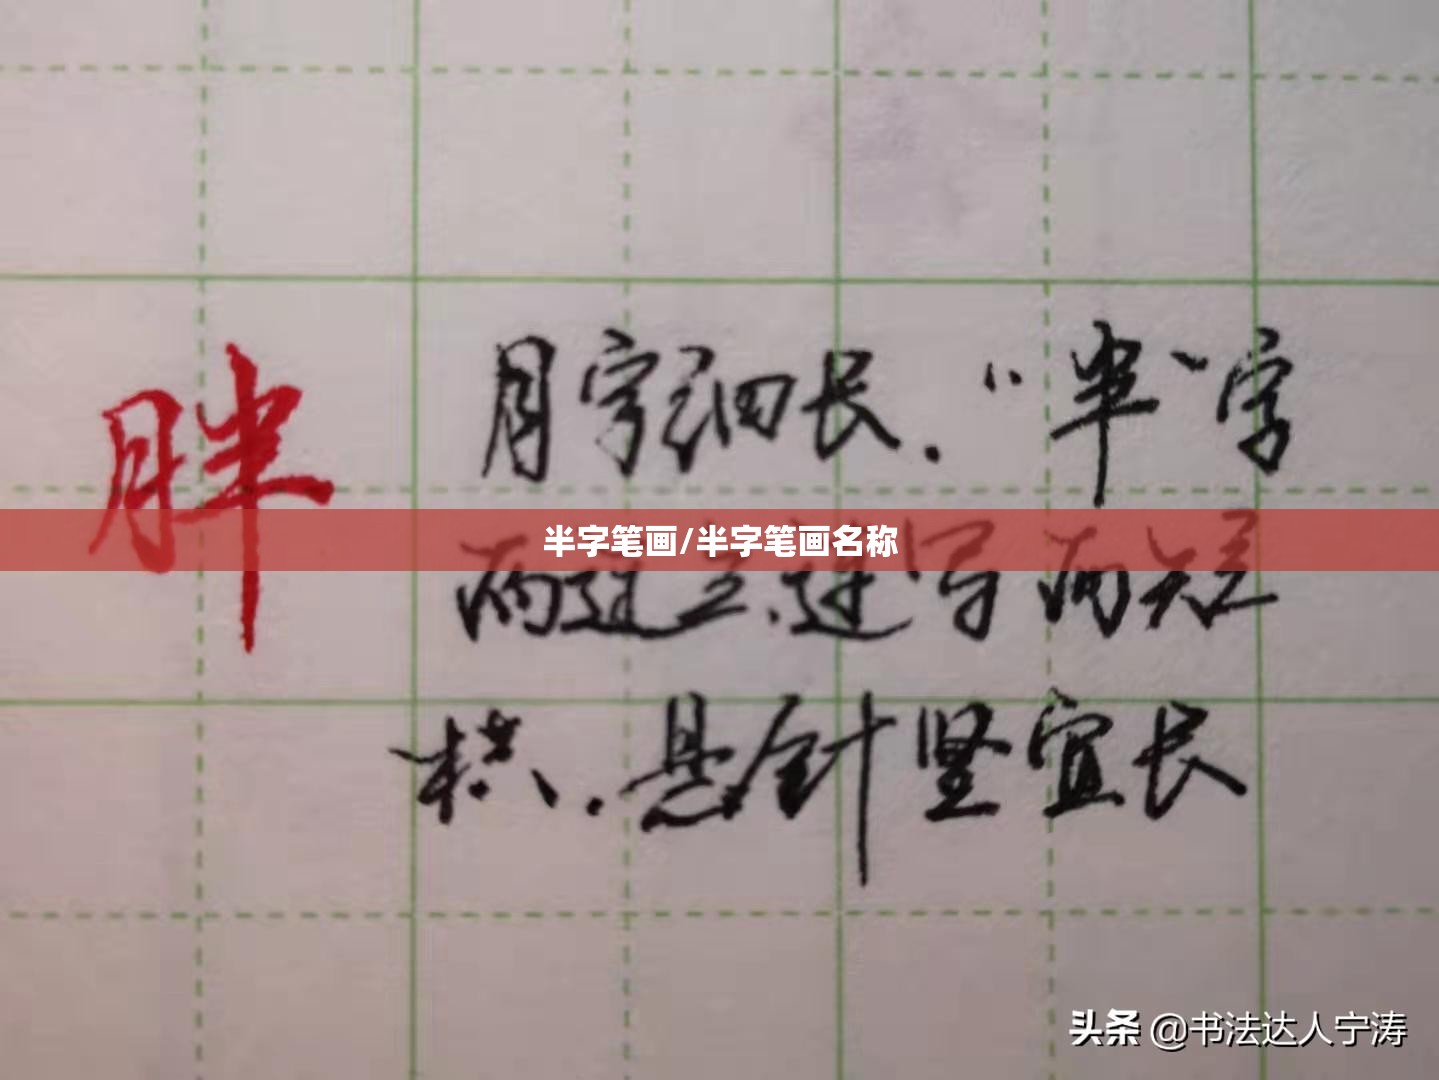 胖
月字细长.“半”字
半字笔画/半字笔画名称
两边 连写两短
横.悬针竖宜长
头条 @书法达人宁涛